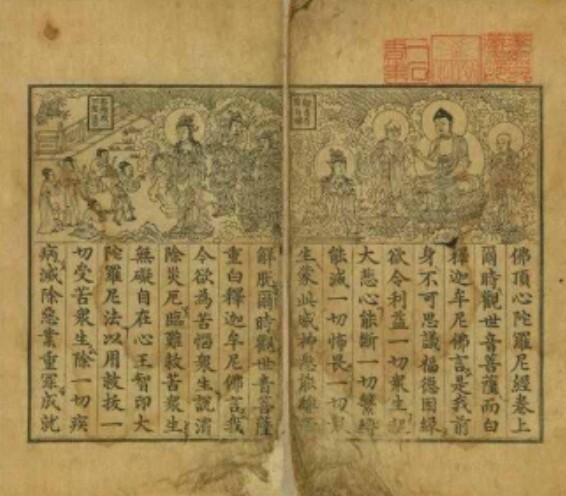 佛頂心陀羅尼經卷上
爾時觀世音菩薩而白
釋迦牟尼佛言是我前
身不可思議福德因緣
欲令利益一切衆生起
大悲心能斷一切繫縛
能滅一切怖畏一切衆
生蒙此威神悉能離苦
解脫爾時觀世音菩薩
重白釋迦牟尼佛言我
今欲為苦惱衆生說消
除災厄臨難救苦衆生
無礙自在心王智印大
陀羅尼法以用救拔一
切受苦衆生除一切疾
病滅除惡業重罪成就